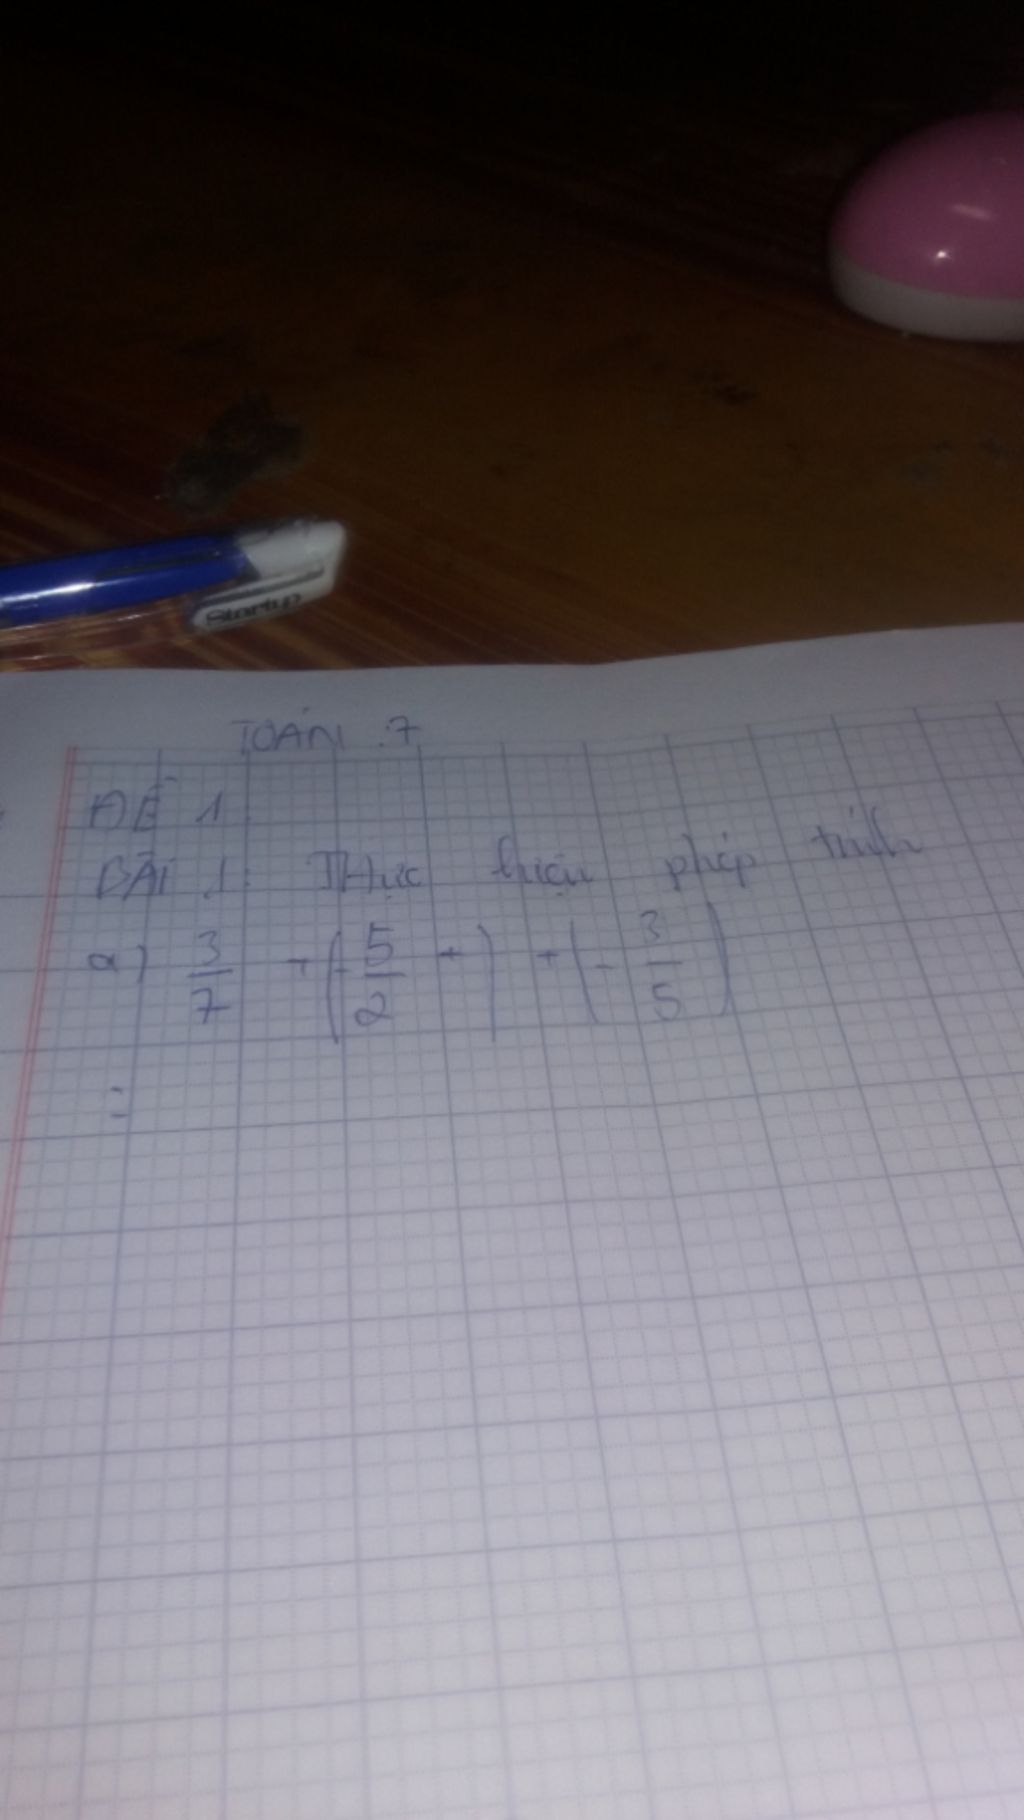 Startup
TOÁN 7
ĐỀ 1
BÀI 1: Thực hiện phép tính
a) 3/7 + (-5/2 + ) + (-3/5)
=